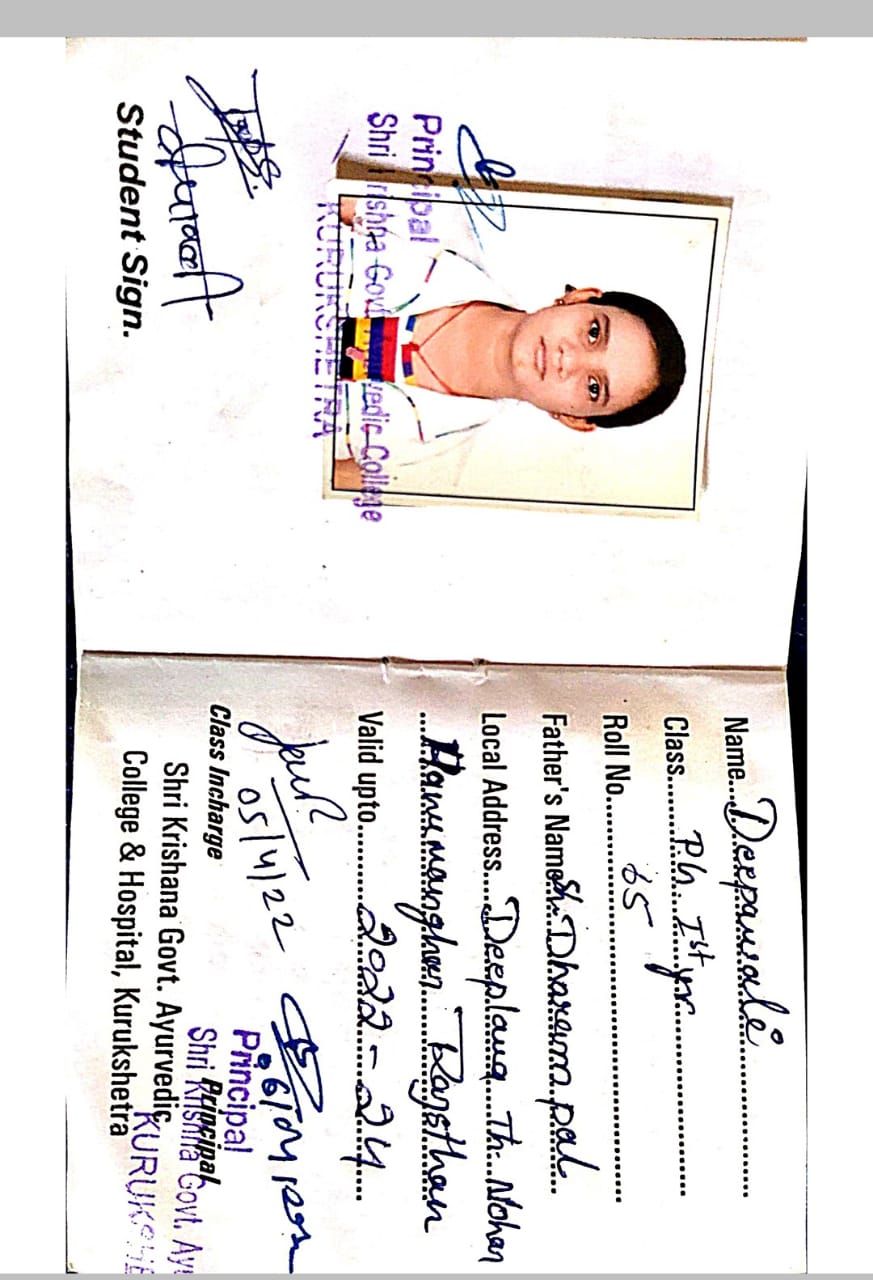 Principal
Shri Krishna Govt. Ayurvedic College
KURUKSHETRA
Student Sign.
Name...Deepawali
Class...Ph. Ist yr
Roll No...65
Father's Name Sh. Dharam pal
Local Address...Deeplana Th. Nohar
Hanumanghar Rajsthan
Valid upto...2022-24
05/4/22
Class Incharge
Principal
Principal
Shri Krishna Govt. Ay
KURUKSHE
Shri Krishana Govt. Ayurvedic
College & Hospital, Kurukshetra